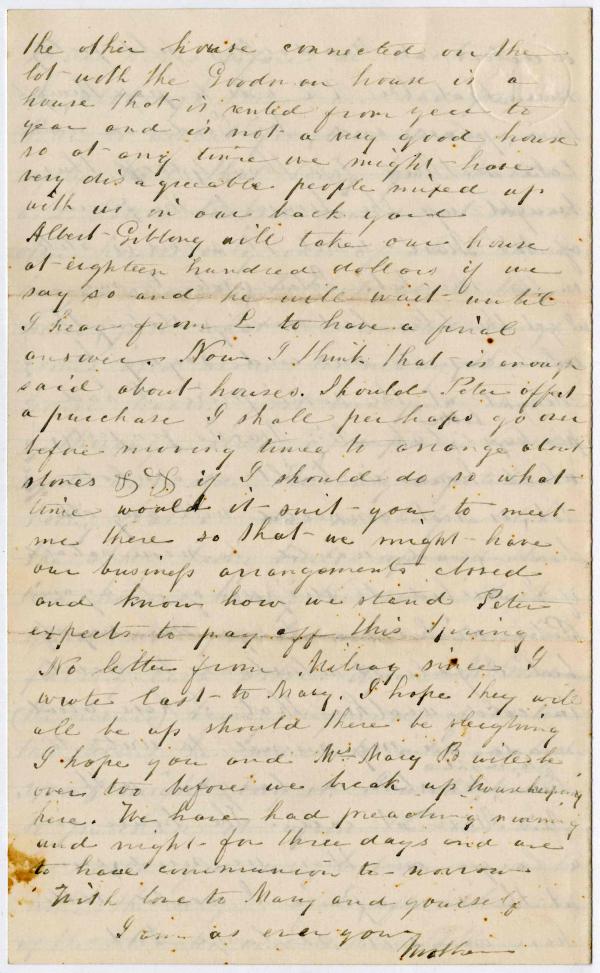 the other house connected on the
lot with the Goodman house is a
house that is rented from year to
year and is not a very good house
so at any time we might have
very disagreeable people mixed up
with us in our back yard
Albert Gibbony will take our house
at eighteen hundred dollars if we
say so and he will wait until
I hear from L to have a final
answer. Now I think that is enough
said about houses. Should Peter effect
a purchase I shall perhaps go over
before moving time to arrange about
stones &c &c if I should do so what
time would it suit you to meet
me there so that we might have
our business arrangements closed
and know how we stand Peter
expects to pay off this Spring
No letter from Milroy since I
wrote last to Mary. I hope they will
all be up should there be sleighing
I hope you and Mrs Mary B will be
over too before we break up housekeeping
here. We have had preaching morning
and night for three days and are
to have communion to-morrow
With love to Mary and yourself
I am as ever your
Mother